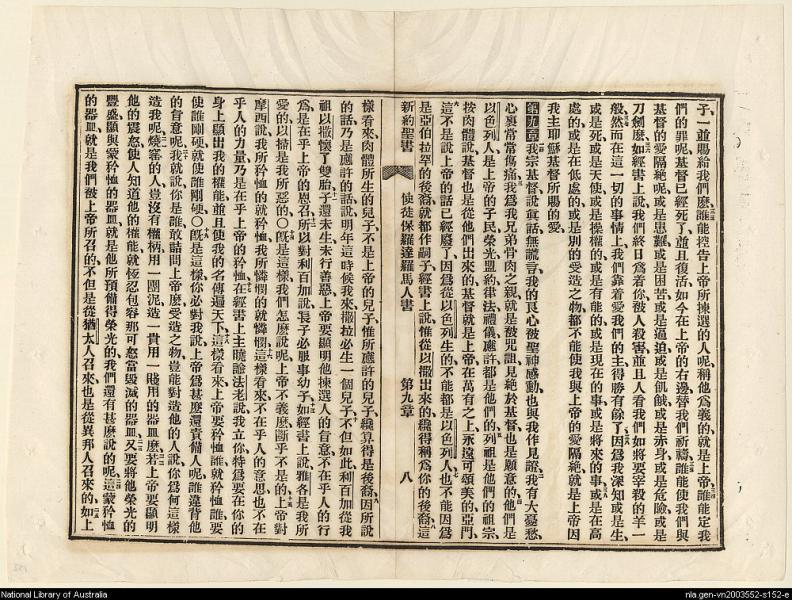 子一並賜給我們麽誰能控告上帝所揀選的人呢稱他爲義的就是上帝誰能定我
們的罪呢基督已經死了並且復活如今在上帝的右邊替我們祈禱誰能使我們與
基督的愛隔絶呢或是患難或是困苦或是逼迫或是飢餓或是赤身或是危險或是
刀劍麽如經書上說我們終日爲着你被人殺害並且人看我們如將要宰殺的羊一
般然而在這一切的事情上我們靠着愛我們的主得勝有餘了因爲我深知或是生
或是死或是天使或是操權的或是有能的或是現在的事或是將來的事或是在高
處的或是在低處的或是別的受造之物都不能使我與上帝的愛隔絶就是上帝因
我主耶穌基督所賜的愛
第九章我宗基督說眞話無謊言我的良心被聖神感動也與我作見證我有大憂愁
心裏常常傷痛我爲我兄弟骨肉之親就是被咒詛見絶於基督也是願意的他們是
以色列人是上帝的子民榮光盟約律法禮儀應許都是他們的列祖是他們的祖宗
按肉體說基督也是從他們出來的基督就是上帝在萬有之上永遠可頌美的亞們
這不是說上帝的話已經廢了因爲從以色列生的不能都是以色列人也不能因爲
是亞伯拉罕的後裔就都作嗣子經書上說惟從以撒出來的纔得稱爲你的後裔這
新約聖書 使徒保羅達羅馬人書 第九章 八
樣看來肉體所生的兒子不是上帝的兒子惟所應許的兒子纔算得是後裔因所說
的話乃是應許的話說明年這時候我來撒拉必生一個兒子不但如此利百加從我
祖以撒懷了雙胎子還未生未行善惡上帝要顯明他揀選人的旨意不在乎人的行
爲是在乎上帝的恩召所以對利百加說長子必服事幼子如經書上說雅各是我所
愛的以掃是我所惡的○旣是這樣我們怎麽說呢上帝不義麽斷乎不是的上帝對
摩西說我所矜恤的就矜恤我所憐憫的就憐憫這樣看來不在乎人的意思也不在
乎人的力量乃是在乎上帝的矜恤在經書上主曉諭法老說我立你特爲要在你的
身上顯出我的權能並且使我的名傳遍天下這樣看來上帝要矜恤誰就矜恤誰要
使誰剛硬就使誰剛硬○旣是這樣你必對我說上帝爲甚麽還責備人呢誰違背他
的旨意呢我就說你是誰敢詰問上帝麽受造之物豈能對造他的人說你爲何這樣
造我呢燒窰的人豈沒有權柄用一團泥造一貴用一賤用的器皿麽若上帝要顯明
他的震怒使人知道他的權能就恒忍包容那可怒當毀滅的器皿又要將他榮光的
豐盛顯與蒙矜恤的器皿就是他所預備得榮光的我們還有甚麽說的呢這蒙矜恤
的器皿就是我們被上帝所召的不但是從猶太人召來也是從異邦人召來的如上
National Library of Australia
nla.gen-vn2003552-s152-e